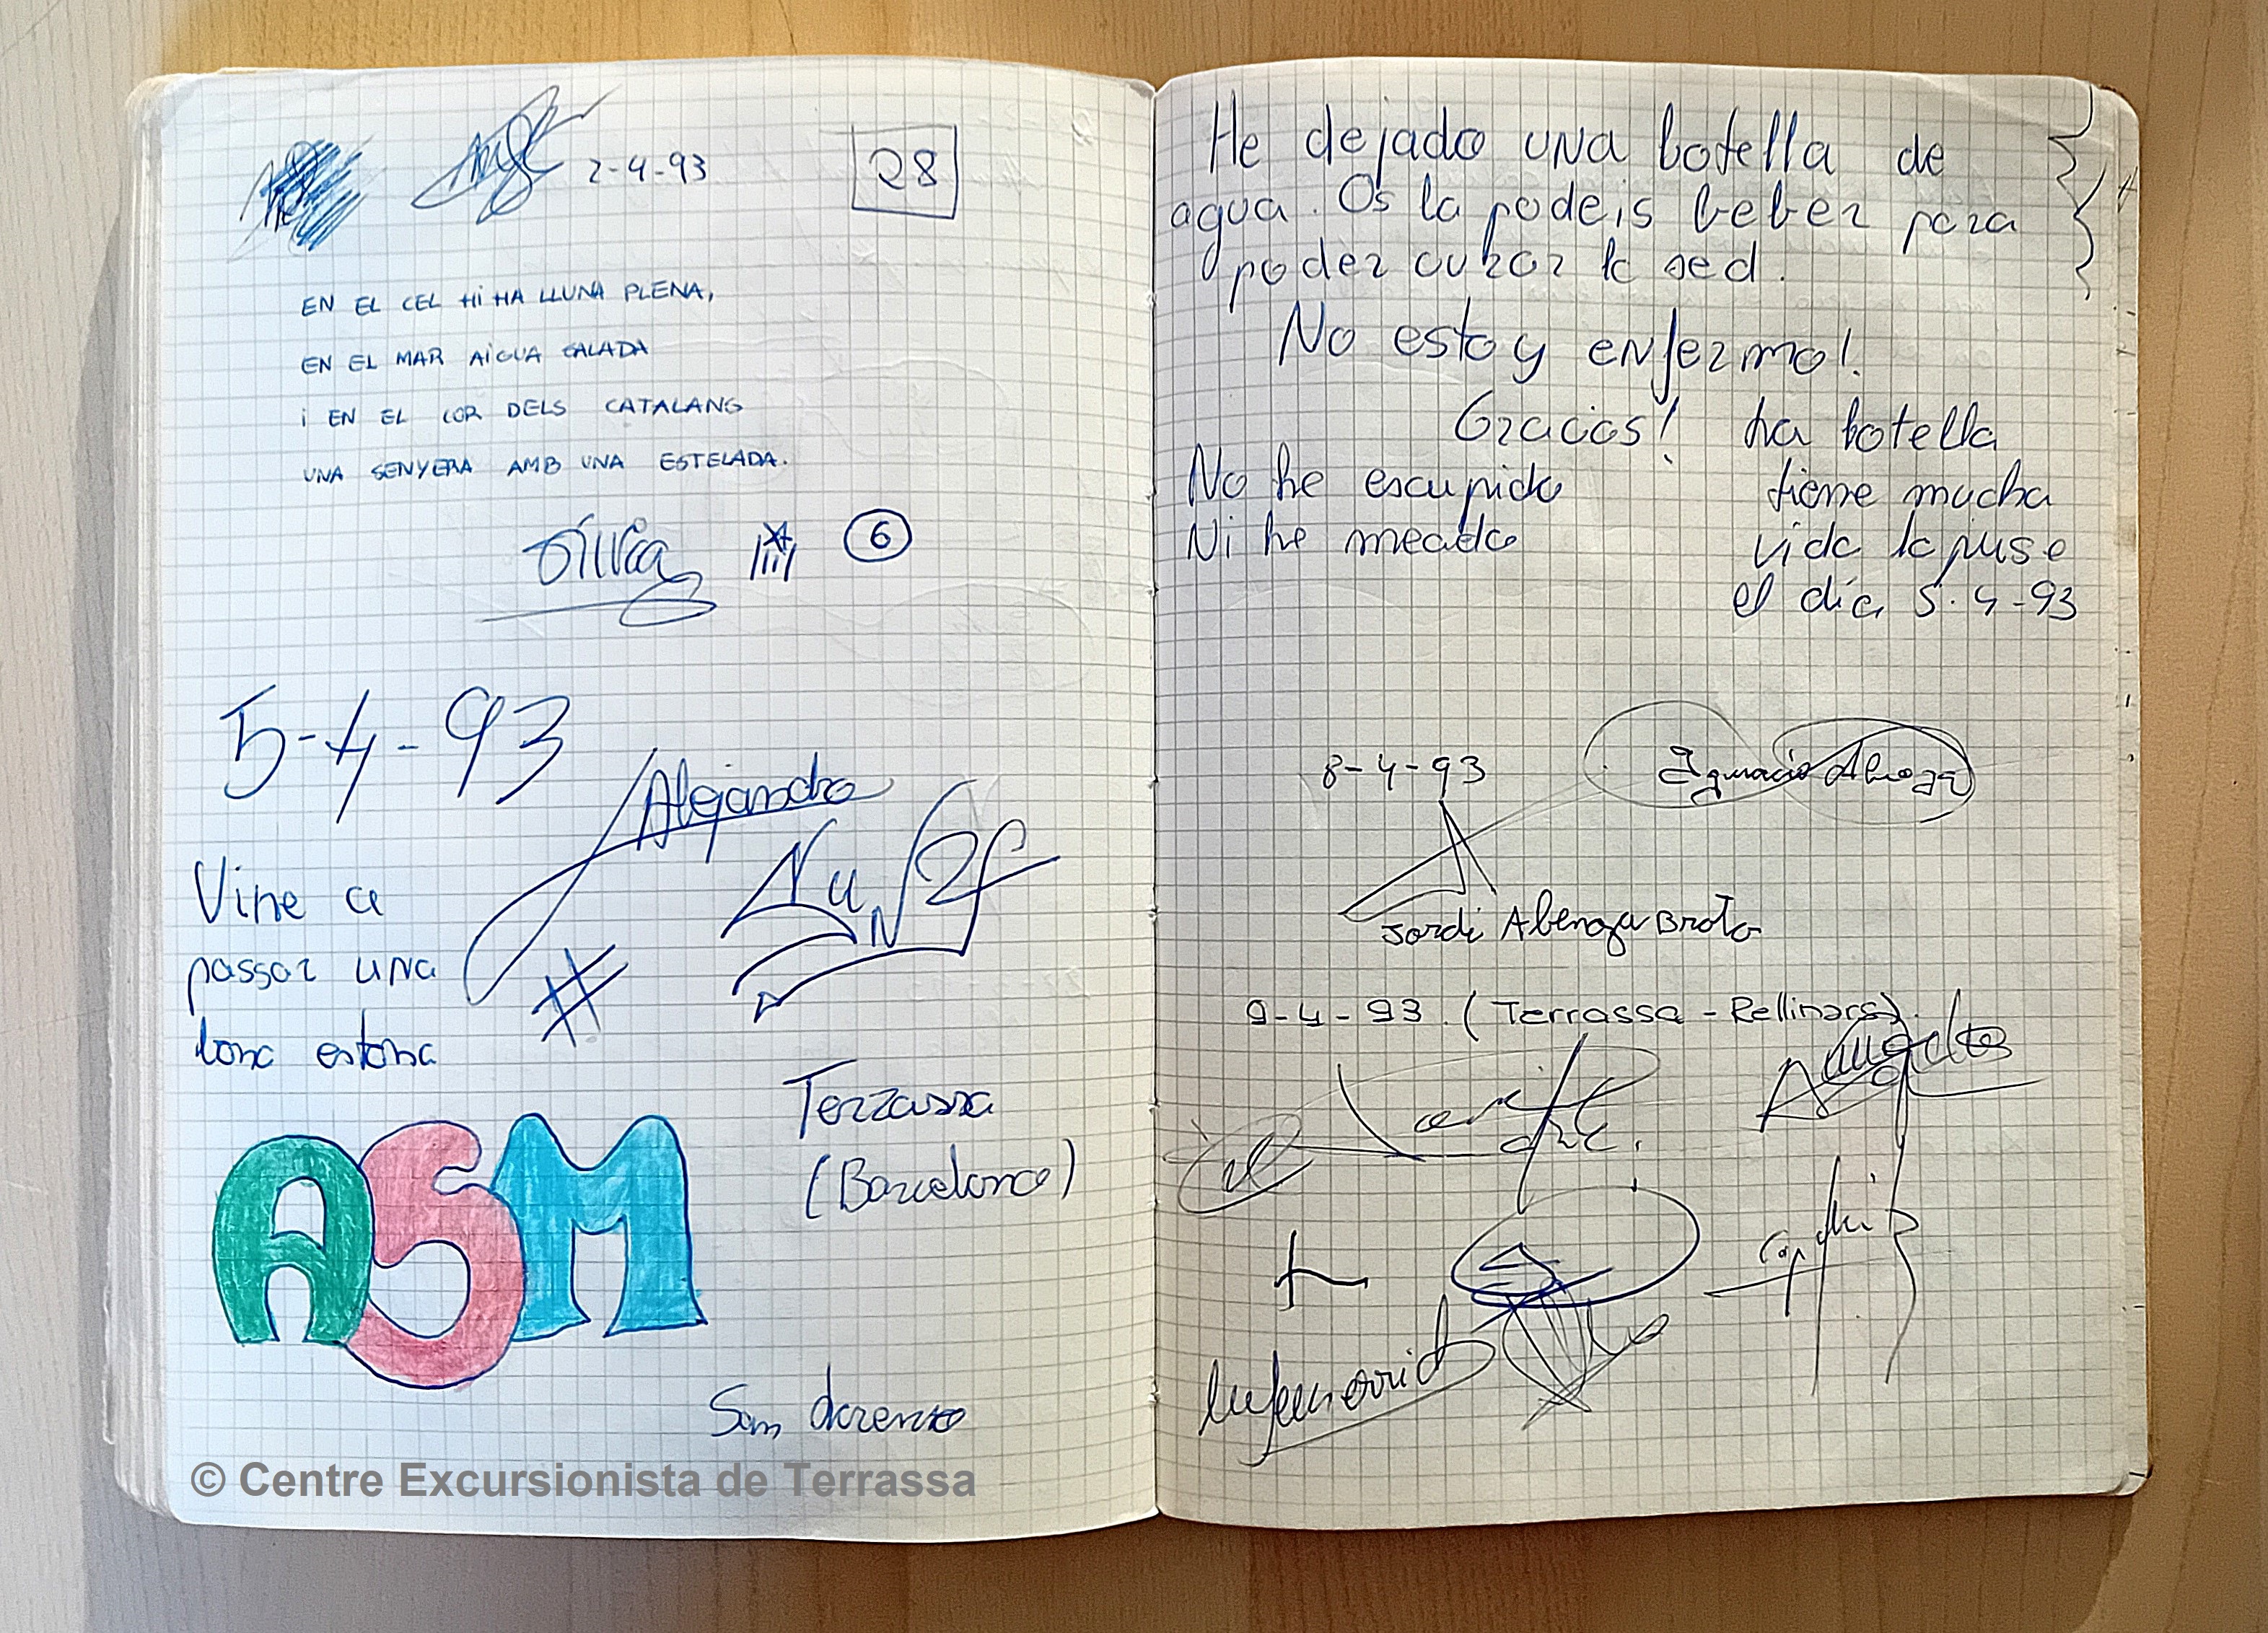 2-4-93
28
EN EL CEL Hi HA LLUNA PLENA,
EN EL MAR AiGUA SALADA
i EN EL COR DELS CATALANS
UNA SENYERA AMB UNA ESTELADA.
Sílvia
6
5-4-93
Alejandro
Vine a
passar una
lona estona
Terrassa
(Barcelona)
ASM
San Lorenzo
© Centre Excursionista de Terrassa
He dejado una botella de
agua. Os la podeis beber para
poder curar la sed.
No estoy enfermo!.
Gracias!
No he escupido
Ni he meado
La botella
tiene mucha
vida la puse
el día 5-4-93
8-4-93
Ignacio
Jordi
9-4-93. (Terrassa - Rellinars).